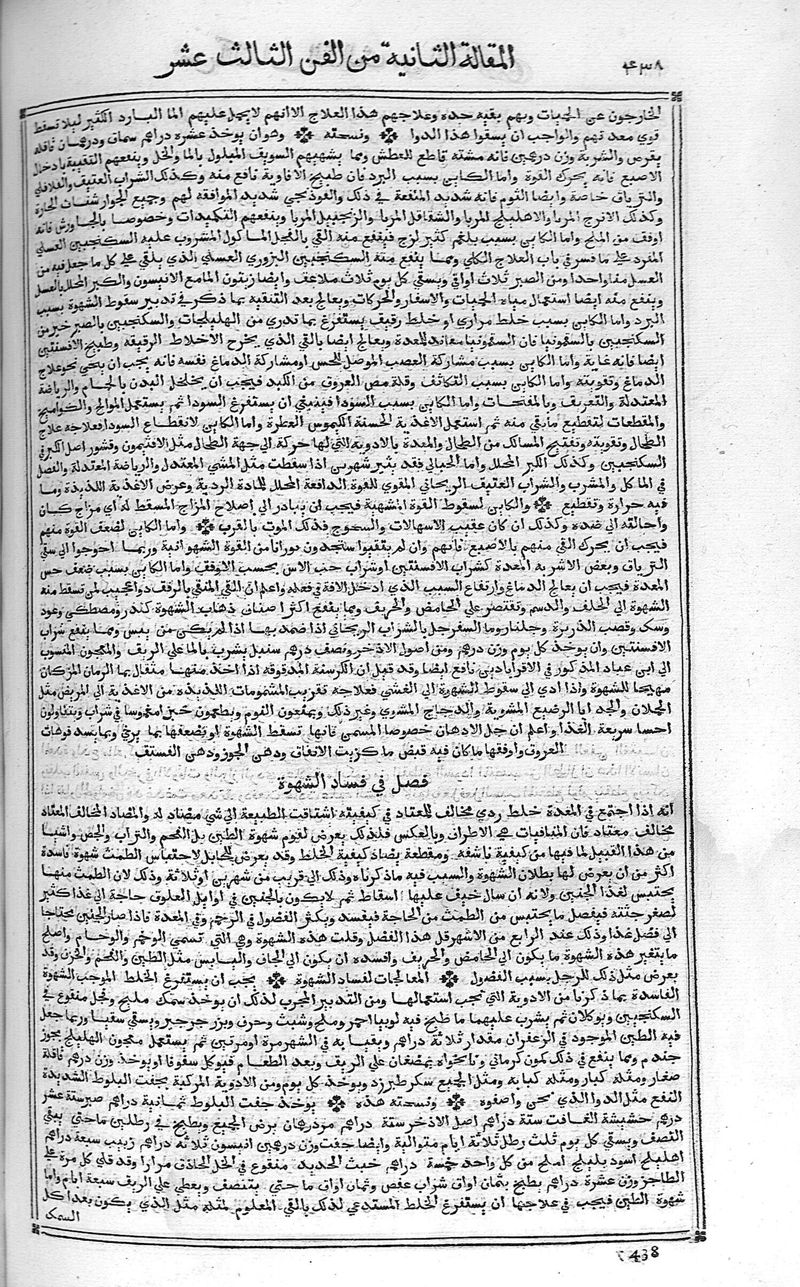 ٤٣٨
المقالة الثانية من الفن الثالث عشر
الخارجون عن الحميات وبهم بقيه حده وعلاجهم هذا العلاج الا انهم لا يحمل عليهم الما البارد الكثير ليلا تسقط
قوي معدتهم والواجب ان يسقوا هذا الدوا ونسخته وهو ان يوخذ عشره دراهم سماق ودرهمان قاقله
يقرض والشربة وزن درهمين فانه مشته قاطع للعطش ومما يشهيهم السويق المبلول بالما والخل وينفعهم التقيية بادخال
الاصبع فانه يحرك القوة واما الكاين بسبب البرد فان طبيخ الافاوية نافع منه وكذلك الشراب العتيق والفلافلي
والترياق خاصة وايضا الثوم فانه شديد المنفعة في ذلك والفوذنجي شديد الموافقة لهم وجميع الجوارشنات الحارة
وكذلك الاترج المربا والاهليلج المربا والشقاقل المربا والزنجبيل المربا وينفعهم التكميدات وخصوصا بالجاورش فانه
اوفق من الملح واما الكاين بسبب بلغم كثير لزج فينفع منه القي بالفجل الماكول المشروب عليه السكنجبين العسلي
المفرد علي ما فسر في باب العلاج الكلي ومما ينفع منه السكنجبين البزوري العسلي الذي يلقي علي كل ما جعل فيه من
العسل منا واحدا ومن الصبر ثلاث اواقي ويسقي كل يوم ثلاث ملاعق وايضا زيتون المامع الانيسون والكبر المخلل بالعسل
وينفع منه ايضا استعمال مياه الحميات والاسفار والحركات ويعالج بعد التنقيه بما ذكر في تدبير سقوط الشهوة بسبب
البرد واما الكاين بسبب خلط مراري او خلط رقيق يستفرغ بما تدري من الهليلجات والسكنجبين بالصبر خير من
السكنجبين بالسقمونيا فان السقمونيا معاند للمعدة ويعالج ايضا بالقي الذي يخرج الاخلاط الرقيقة وطبيخ الافسنتين
ايضا فانه غاية واما الكاين بسبب مشاركة العصب الموصل للحس او مشاركة الدماغ نفسه فانه يجب ان ينحي نحو علاج
الدماغ وتقويته واما الكاين بسبب التكاثف وقلة مص العروق من الكبد فيجب ان يخلخل البدن بالحمام والرياضة
المعتدلة والتعريق وبالمفتحات واما الكاين بسبب السودا فينبغي ان يستفرغ السودا ثم يستعمل الموالح والكواميخ
والمقطعات لتقطيع ما بقي منه ثم استعمل الاغذية الحسنة الكيموس العطرة واما الكاين لانقطاع السودا فعلاجه علاج
الطحال وتقويته وتفتيح المسالك بين الطحال والمعدة بالادوية التي لها حركة الي جهة الطحال مثل الافتيمون وقشور اصل الكبر في
السكنجبين وكذلك الكبر المخلل واما الحبالي فقد يثير شهوتهن اذا سقطت مثل المشي المعتدل والرياضة المعتدلة والفصل
في الماكل والمشرب والشراب العتيق الريحاني المقوي للقوة الدافعة المحلل للمادة الردية وعرض الاغذية اللذيذة وما
فيه حرارة وتقطيع والكاين لسقوط القوة المشهية فيجب ان يبادر الي اصلاح المزاج المسقط له اي مزاج كان
واحالته الي ضده وكذلك ان كان عقيب الاسهالات والسحوج فذلك الموت بالقرب واما الكاين لضعف القوة منهم
فيجب ان يحرك القي منهم بالاصبع فانهم وان لم يقيوا ستجدون ثورانا من القوة الشهوانية وربما احوجوا الي سقي
الترياق وبعض الاشربة المعدة كشراب الافسنتين او شراب حب الاس بحسب الاوفق واما الكاين بسبب ضعف حس
المعدة فيجب ان يعالج الدماغ وارتفاع السبب الذي ادخل الافة في فعله واعلم ان القي المنقي بالرفق دوا عجيب لمن تسقط منه
الشهوة الي الحلف والدسم وتقتصر علي الحامض والحريف ومما ينفع اكثر اصناف ذهاب الشهوة كندر ومصطكي وعود
وسك وقصب الذريرة وجلنار وما السفرجل بالشراب الريحاني اذا ضمد بها اذا لم يكن من يبس ومما ينفع شراب
الافسنتين وان يوخذ كل يوم وزن درهم من اصول الاذخر ونصف درهم سنبل يشرب بالما علي الريق والمعجون المنسوب
الي ابن عباد المذكور في الاقراباذين نافع ايضا وقد قيل ان الكرسنة المدقوقة اذا اخذ منها مثقال بما الرمان المز كان
مهيجا للشهوة واذا ادي الي سقوط الشهوة الي الغشي فعلاجه تقريب المشمومات اللذيذه من الاغذية الي المريض مثل
الحملان والجدايا الرضيع المشوية والدجاج المشوي وغير ذلك ويمنعون النوم ويطعمون خبزا مغموسا في شراب ويتناولون
احسا سريعة الغذا واعلم ان جل الادهان خصوصا السمن فانها تسقط الشهوة او تضعفها بما يرخي وبما يسد فوهات
العروق واوفقها ما كان فيه قبض ما كزيت الانفاق ودهن الجوز ودهن الفستق
فصل في فساد الشهوة
انه اذا اجتمع في المعدة خلط ردي مخالف للمعتاد في كيفيته اشتاقت الطبيعة الي شي مضاد له والمضاد المخالف المعتاد
مخالف معتاد فان المنافيات هي الاطراف وبالعكس فلذلك يعرض لقوم شهوة الطين بل الفحم والتراب والجص واشيا
من هذا القبيل لما فيها من كيفية ناشفه ومقطعة يضاد كيفية الخلط وقد يعرض للحبلي لاحتباس الطمث شهوة فاسدة
اكثر من ان يعرض لها بطلان الشهوة والسبب فيه ما ذكرناه وذلك الي قريب من شهرين او ثلاثة وذلك لان الطمث منها
يحتبس لغذا الجنين ولانه ان سال خيف عليها اسقاط ثم لا يكون بالجنين في اوايل العلوق حاجة الي غذا كثير
لصغر جثته فيفضل ما يحتبس من الطمث من الحاجة فيفسد ويكثر الفضول في الرحم وفي المعدة فاذا صار الجنين محتاجا
الي فضل غذا وذلك عند الرابع من الاشهر قل هذا الفضل وقلت هذه الشهوة وهي التي تسمي الوحم والوحام واصلح
ما يتغير هذه الشهوة ما يكون الي الحامض والحريف وافسده ان يكون الي الجاف واليابس مثل الطين والفحم والخزف وقد
يعرض مثل ذلك للرجل بسبب الفضول المعالجات لفساد الشهوة يجب ان يستفرغ الخلط الموجب الشهوة
الفاسدة بما ذكرنا من الادوية التي يجب استعمالها ومن التدبير المجرب لذلك ان يوخذ سمك مليح وفجل منقوع في
السكنجبين ويوكلان ثم يشرب عليهما ما طبخ فيه لوبيا احمر وملح وشبث وحرف وبزر جرجير ويسقي سقيا وربما جعل
فيه الطين الموجود في الزعفران مقدار ثلاثة دراهم ويقيا به في الشهر مرة او مرتين ثم يستعمل معجون الهليلج بجوز
جندم ومما ينفع في ذلك كمون كرماني ونانخواه يمضغان علي الريق وبعد الطعام فيوكل سفوفا او يوخذ وزن درهم قاقلة
صغار ومثله كبار ومثله كبابه ومثل الجميع سكر طبرزد ويوخذ كل يوم ومن الادوية المركبة بجفت البلوط الشديدة
النفع مثل الدوا الذي نحن واصفوه ونسخته هذه يوخذ جفت البلوط ثمانية دراهم صبر ستة عشر
درهم حشيشة الغافت ستة دراهم اصل الاذخر ستة دراهم مر درهمان يرض الجميع ويطبخ في رطلين ما حتي يبقي
النصف ويسقي كل يوم ثلث رطل ثلاثة ايام متوالية وايضا جفت وزن درهمين انيسون ثلاثة دراهم زبيب سبعة دراهم
اهليلج اسود بليلج املج من كل واحد خمسة دراهم خبث الحديد منقوع في الخل الحاذق مرارا وقد قلي كل مرة علي
الطاجن وزن عشرة دراهم يطبخ بثمان اواق شراب عفص وثمان اواق ما حتي ينتصف ويعطي علي الريق سبعة ايام واما
شهوة الطين فيجب في علاجها ان يستفرغ الخلط المستدعي لذلك بالقي المعلوم لمثله مثل الذي يكون بعد اكل
السمك
438